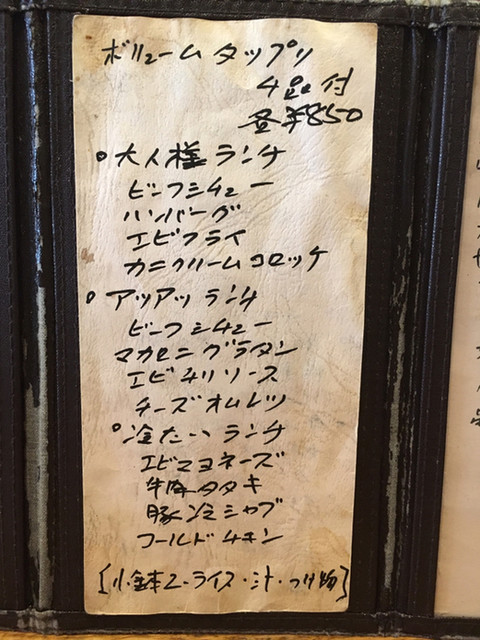 ボリューム タップリ
4品付
各¥850
○大人様ランチ
ビーフシチュー
ハンバーグ
エビフライ
カニクリームコロッケ
○アツアツランチ
ビーフシチュー
マカロニグラタン
エビチリソース
チーズオムレツ
○冷たいランチ
エビマヨネーズ
牛肉タタキ
豚冷シャブ
コールドチキン
[小鉢2・ライス・汁・つけ物]